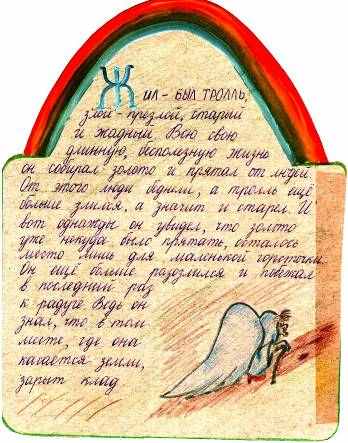 ЖИЛ - БЫЛ ТРОЛЛЬ,
злой - презлой, старый
и жадный. Всю свою
длинную, бесполезную жизнь
он собирал золото и прятал от людей.
От этого люди беднели, а тролль ещё
больше злился, а значит и старел. И
вот однажды он увидел, что золото
уже некуда было прятать, осталось
место лишь для маленькой горсточки.
Он ещё больше разозлился и побежал
в последний раз
к радуге. Ведь он
знал, что в том
месте, где она
касается земли,
зарыт клад